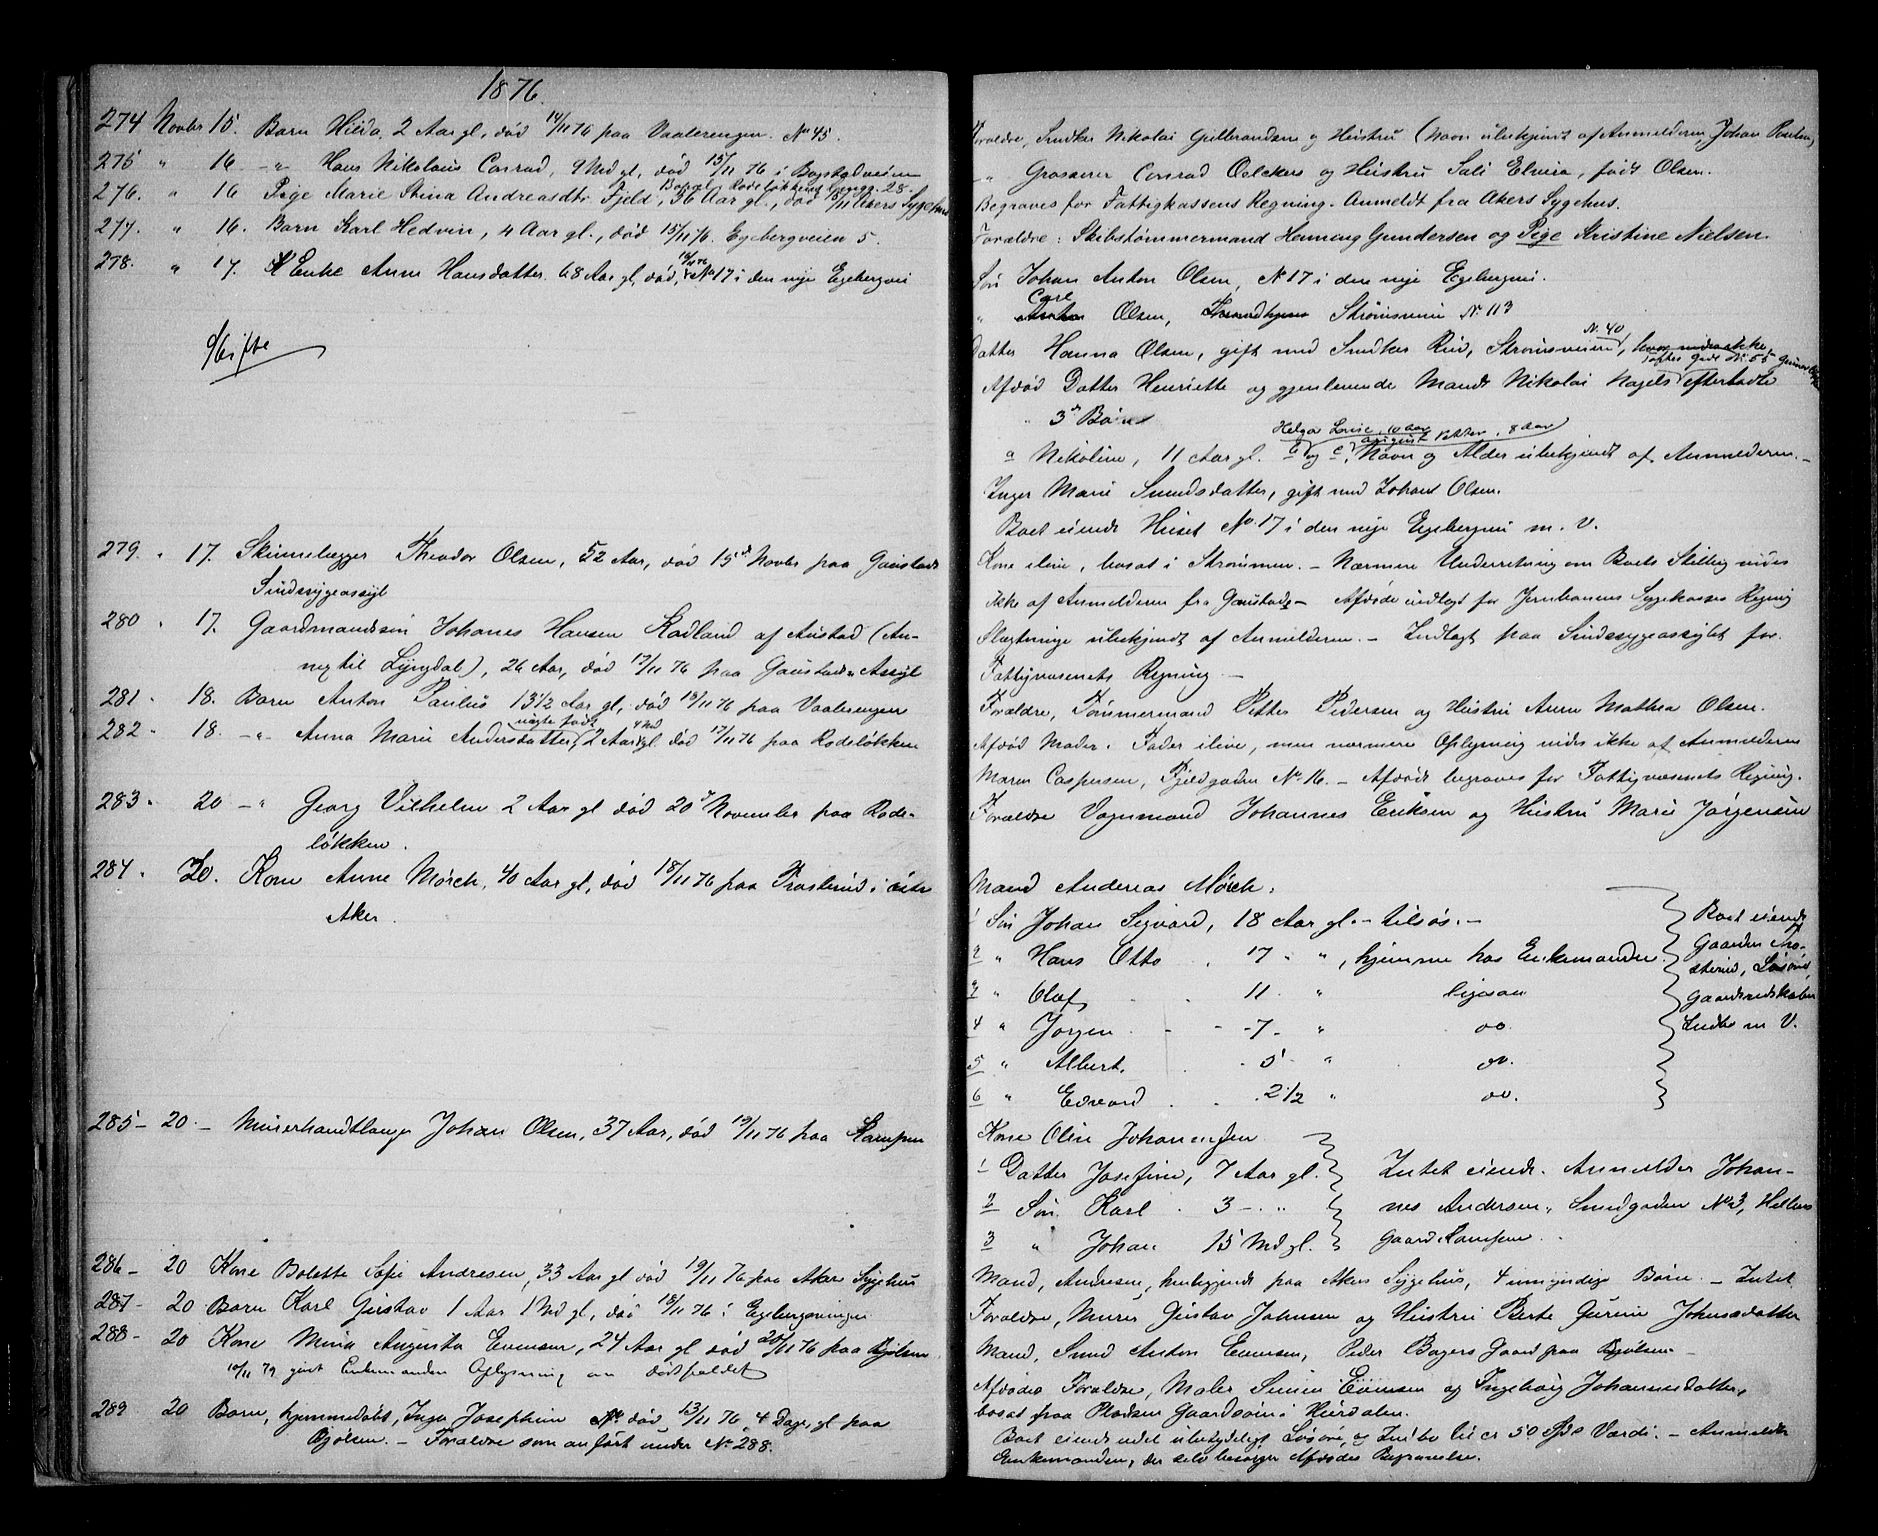 1876.
274 Novbr 15. Barn Hilda, 2 Aar gl., død 14/11 76 paa Vaalerengen. No 45.
275 " 16 -"- Hans Nikolaus Conrad, 9 Md gl, død 15/11 76 i Bogstadveien
276. " 16 Pige Marie Stina Andreasdtr Fjeld, 36 Aar gl., død /11 Akers Sygehus
Bopæl Rodeløkkens 28.
277. " 16. Barn Karl Hedvin, 4 Aar gl., død 15/11 76. Egebergveien 5.
278. " 17. Enke Anne Hansdatter 68 Aar gl, død, 16/11 76 No 17 i den nye Egebergvei
Skifte
279. " 17. Skinnelægger Theodor Olsen, 52 Aar, død 15d Novbr paa Gaustads
Sindssygeassyl
280 " 17. Gaardmandssøn Johanes Hansen Rødland af Austad (An-
nex til Lyngdal), 26 Aar, død 17/11 76 paa Gaustads Assyl
281 - 18. Barn Anton Paulus 13 1/2 Aar gl, død 18/11 76 paa Vaalerengen
282 " 18. -"- Anna Marie Andersdatter, uægte født 2 Aar 4 Md gl død 17/11 76 paa Rodeløkken
283 " 20 -"- Georg Vilhelm 2 Aar gl død 20d November paa Rode-
løkken.
284 " 20. Kone Anne Mørch, 40 Aar gl, død 18/11 76 paa Trosterud i østre
Aker.
285 - 20 - Murerhandtlanger Johan Olsen, 37 Aar, død 19/11 76 paa Kampen
286 - 20 Kone Bolette Sofie Andresen, 33 Aar gl død 19/11 76 paa Aker Sygehus
287 - 20 Barn Karl Gustav 1 Aar 1 Md gl, død 18/11 76 i Egebergsvingen
288 - 20 Kone Mina Augusta Evensen, 24 Aar gl død 20/11 76 paa Bjølsen.
10/11 79 givet Enkemanden Oplysning om dødsfaldet
289 20 Barn, hjemmedøbt, Inga Josephine død 13/11 76, 4 Dage, gl paa
Bjølsen. - Forældre som anført under No 288.
Forældre, Snedker Nikolai Gulbrandsen og Hustru (Navn ubekjendt af Anmelderen, Johan Poulsen)
-"- Grosserer Conrad Oelckers og Hustru Sali Elvira, født Olsen.
Begraves for Fattigkassens Regning. Anmeldt fra Akers Sygehus.
Forældre: Skibstømmermand Henning Gundersen og Pige Kristine Nielsen.
Søn Johan Anton Olsen, No 17 i den nye Egebergvei.
" Carl Olsen, Strømsveien No 113
Datter Hanna Olsen, gift med Snedker Rud, Strømsveien No. 40,
Afdød Datter Henriette og gjenlevende Mand Nikolai Nagels efterladte
3de Børn
a Nikoline, 11 Aar gl. b og c, Navn og Alder ubekjendt af Anmelderen. -
Helga Louise, 10 Aar
August Petter, 8 Aar
Inger Marie Svendsdatter, gift med Johan Olsen.
Boet eiende Huset No. 17 i den nye Egebergvei m. V.
Kone ilive, bosat i Strømmen. - Nærmere Underretning om Boets Stilling vides
ikke af Anmelderen fra Gaustad. - Afdøde indlagt for Jernbanens Sygekasses Regning
Slægtninge ubekjendt af Anmelderen. - Indlagt paa Sindssygeassylet for
Fattigvæsenets Regning. -
Forældre, Tømmermand Petter Pedersen og Hustru Anne Mathea Olsen.
Afdød Moder. Fader ilive, men nærmere Oplysning vides ikke af Anmelderen
Maren Caspersen, Fjeldgaden No. 16. - Afdøde begraves for Fattigvæsenets Regning.
Forældre Vognmand Johannes Eriksen og Hustru Marie Jørgensen
Mand Andreas Mørch.
1 Søn Johan Sigvard, 18 Aar gl. - tilsøs. -
2 " Hans Otto 17 " ", hjemme hos Enkemanden.
3 " Olaf 11 " ligesaa
4 " Jørgen - 7 - " do.
5 " Albert. - 5 - " do.
6 " Edvard 2 1/2 " do.
Boet eiende
Gaarden Tro-
sterud, Løsøre
Gaardsredskaber
Indbo m V.
Kone Oline Johannessen
1 Datter Josefine, 7 Aar gl.
2 Søn Karl 3 - "
3 " Johan 15 Md gl.
Intet eiende. Anmelder Johan-
nes Andersen, Smedgaden No 3,
Gaard Kampen.
Mand, Andresen, henliggende paa Akers Sygehus, 4 umyndige Børn. - Intet
Forældre, Murer Gustav Johnsen og Hustru Berte Gurine Johnsdatter
Mand, Smed Anton Evensen, Peder Bagers Gaard paa Bjølsen -
Afdødes Forældre, Maler Simen Evensen og Ingeborg Johannesdatter,
bosat paa Pladsen Gaardsøen i Hurdalen.
Boet eiende udel ubetydeligt Løsøre og Indbo til ca 50 Spd Værdi. - Anmeldt
Enkemanden, der selv besørger Afdødes Begravelse.